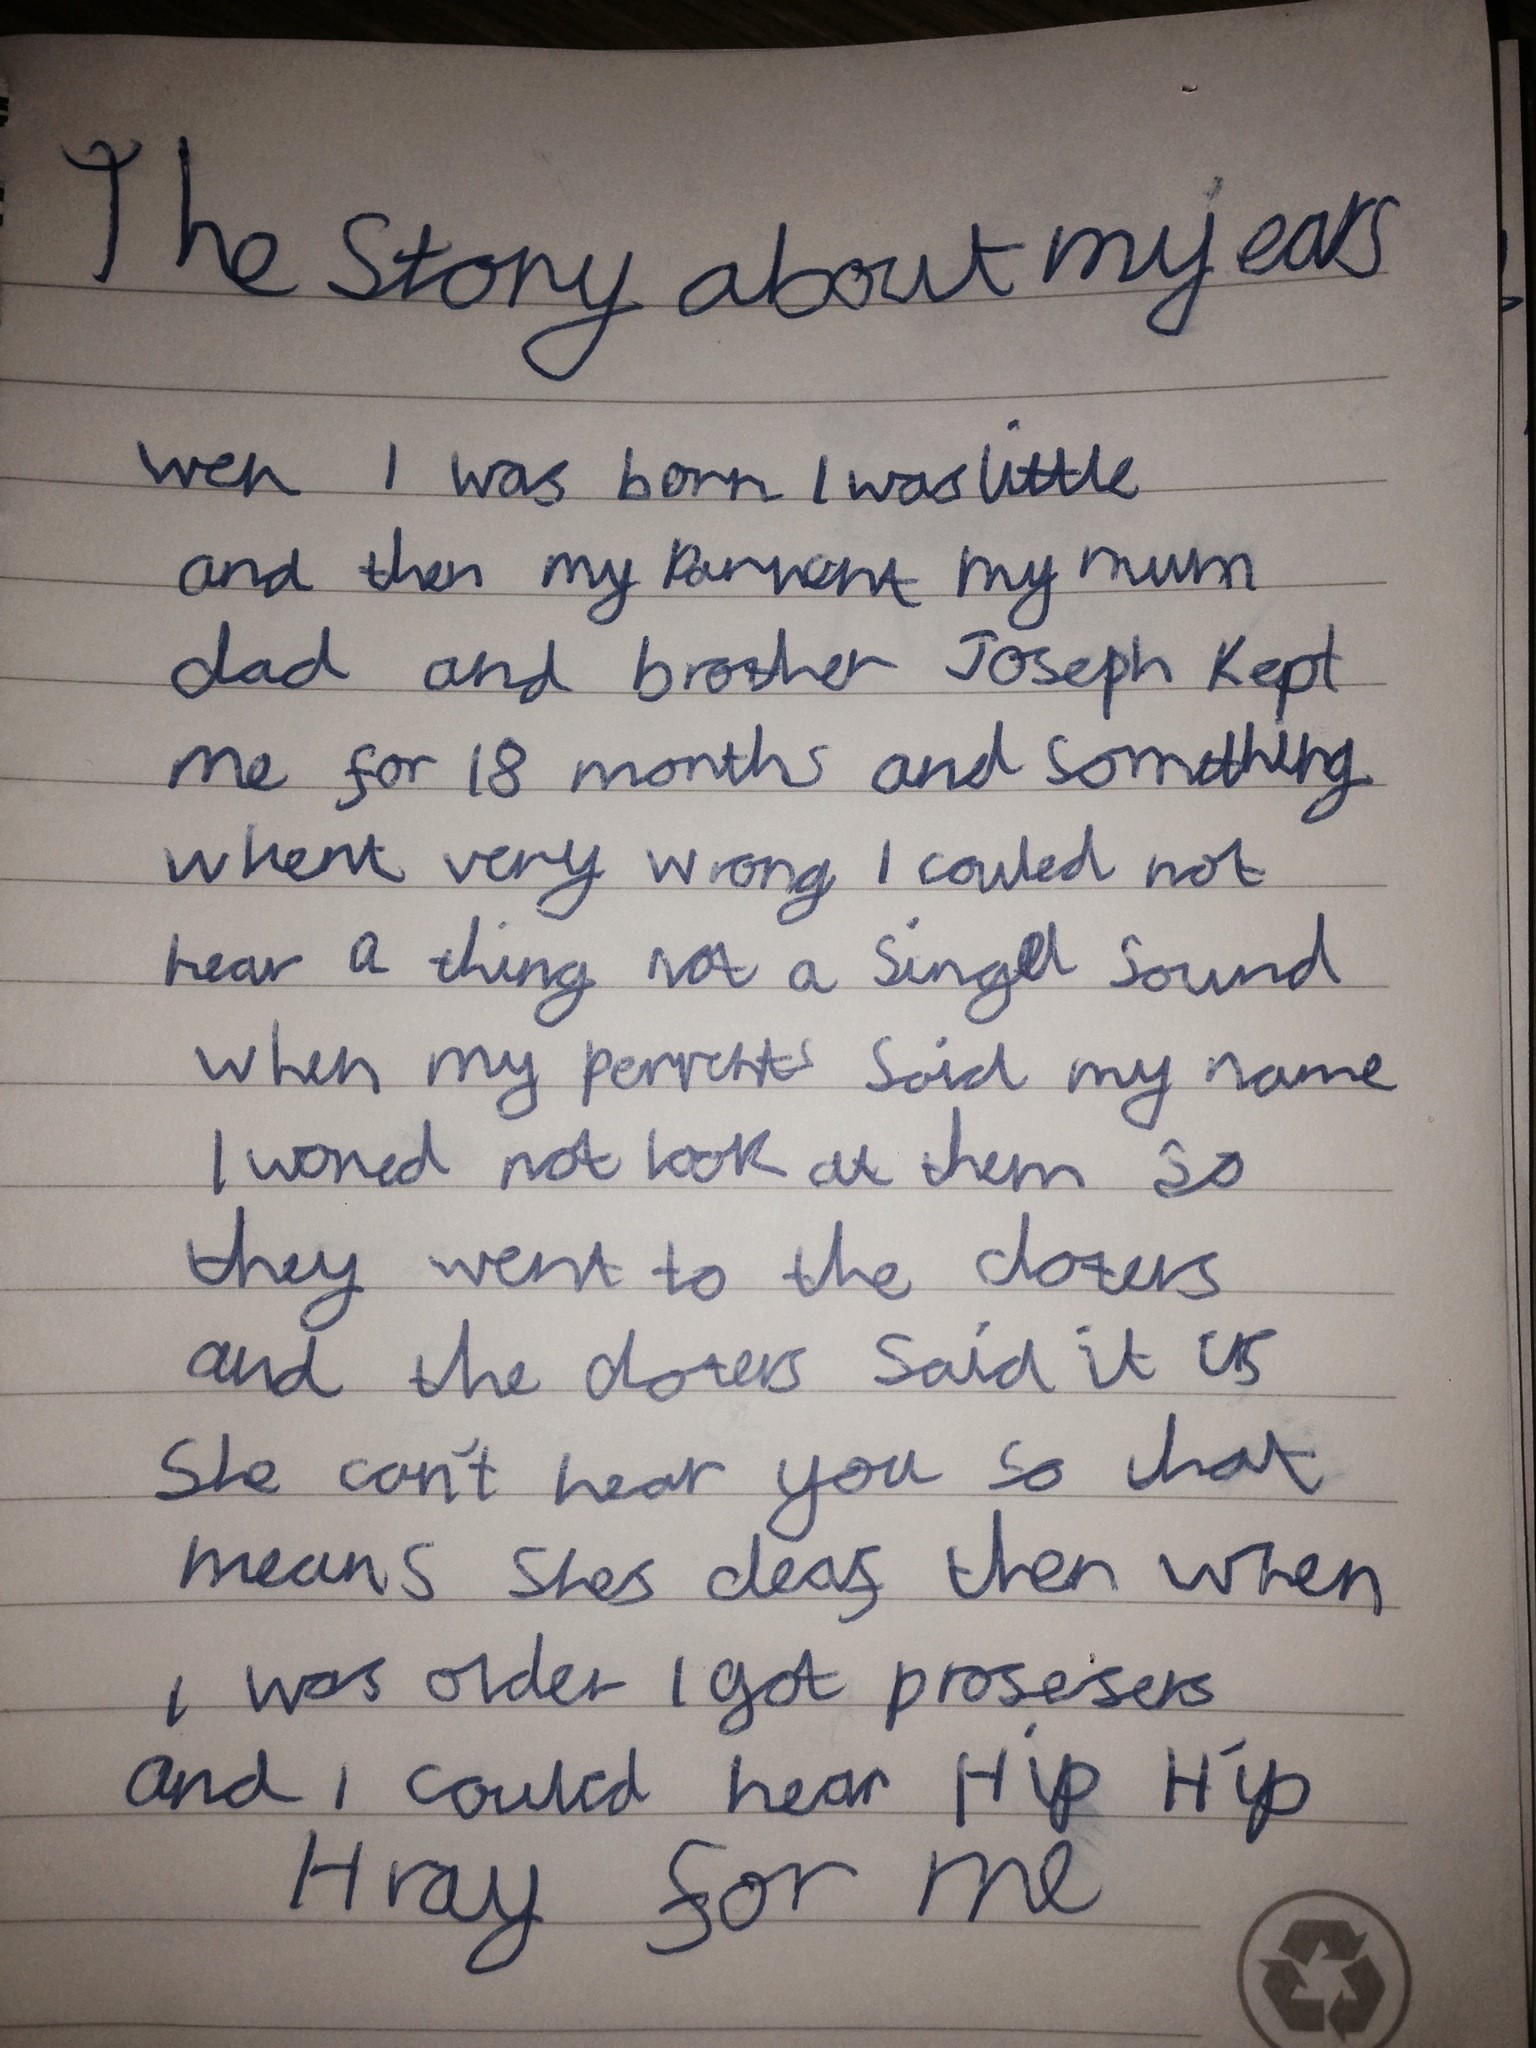 The Story about my ears
wen I was born I was little
and then my Parrent my mum
dad and brother Joseph Kept
me for 18 months and something
whent very wrong I couled not
hear a thing not a singel sound
when my perrents said my name
I woned not look at them so
they went to the doters
and the doters said it is
She can't hear you so that
means Shes deaf then when
I was older I got prosesers
and I could hear Hip Hip
Hray for me